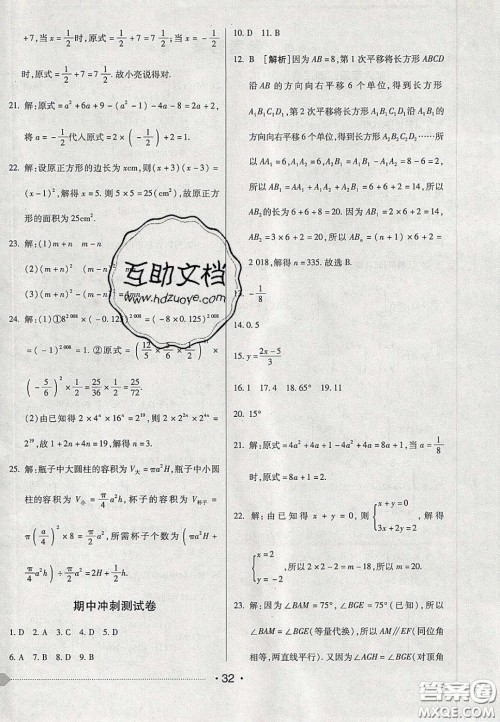 +7,当 x = 1/2 时,原式 = 1/2 + 7 = 7 1/2. 故小亮说得对.
21. 解:原式 = a² + 6a + 9 - (a² - 1) - 4a - 8 = 2a + 2,
将 a = -1/2 代入原式 = 2 × (-1/2) + 2 = 1.
22. 解:设原正方形的边长为 xcm,则 (x+3)(x-3) =
(x-1)²,解得 x = 5. 5 × 5 = 25(cm²),故原正方
形的面积为 25cm².
23. 解:(1)(m+n) m-n
(2)(m+n)²
(3)(m+n)²
24. 解:(1)①8²⁰⁰⁸ × (-0.125)²⁰⁰⁸ = (-8×0.125)²⁰⁰⁸
= (-1)²⁰⁰⁸ = 1. ②原式 =
× (-5/6)² × 1/2 = 25/36 × 1/2 = 25/72.
(2)由已知得 2 × 4ⁿ × 16ⁿ = 2¹⁹,则 2 × 2²ⁿ × 2⁴ⁿ =
2¹⁹,故 1 + 2n + 4n = 19,解得 n = 3.
25. 解:瓶子中大圆柱的容积为 V大 = πa²H,瓶子中小圆
柱的容积为 V小 = π/4 a²h,杯子的容积为 V杯子 =
π(a/4)² × 8 = π/2 a²,所需杯子个数为 (πa²H +
π/4 a²h) ÷ π/2 a² = 2H + 1/2 h.
期中冲刺测试卷
1. D 2. A 3. C 4. D 5. D
6. A 7. D 8. D 9. B
10. D 11. B
12. B [解析]因为 AB = 8,第 1 次平移将长方形 ABCD
沿 AB 的方向向右平移 6 个单位,得到长方形
A₁B₁C₁D₁,第 2 次平移将长方形 A₁B₁C₁D₁ 沿 A₁B₁
的方向向右平移 6 个单位,得到长方形 A₂B₂C₂D₂……所
以 AA₁ = 6, A₁A₂ = 6, A₂B₁ = A₁B₁ - A₁A₂ = 8 - 6 = 2,所
以 AB₁ = AA₁ + A₁A₂ + A₂B₁ = 6 + 6 + 2 = 14,所以
AB₂ = 3 × 6 + 2 = 20. 因为 AB₁ = 2 × 6 + 2 = 14,
AB₂ = 3 × 6 + 2 = 20,所以 ABₙ = (n+1) × 6 + 2 =
2 018,解得 n = 335. 故选 B.
-1/8
14. 0.5
15. y = (2x-5)/3
16. 1 17. 4 18. 65° 19. 11
20. 15°
21. 解:原式 = 4a² + 4a + 1 - 4a² + 4a = 8a + 1,当 a = 1/8
时,原式 = 8a + 1 = 2.
22. 解:由已知得 x + y = 0,则 { x + y = 0, 3x + 2y = 2, 解得
{ x = 2, y = -2.
23. 解:因为 ∠BAM = 75°, ∠BGE = 75°(已知),所以
∠BAM = ∠BGE(等量代换),所以 AM∥EF(同位角
相等,两直线平行). 又因为 ∠AGH = ∠BGE(对顶角
· 32 ·
互助文档
www.hdzuoye.com
答案圈
MXQE.COM